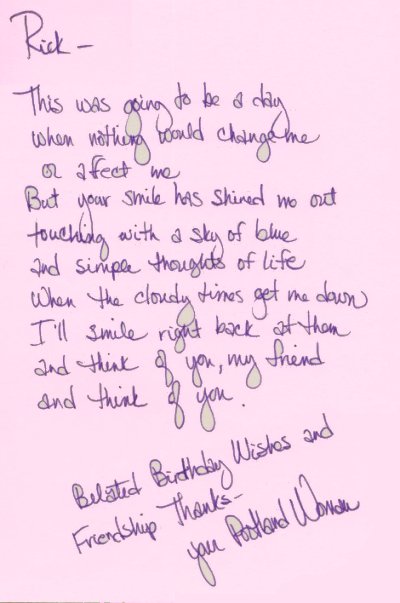 Rick -
This was going to be a day
when nothing would change me
or affect me
But your smile has shined me out
touching with a sky of blue
and simple thoughts of life
When the cloudy times get me down
I'll smile right back at them
and think of you, my friend
and think of you.
Belated Birthday Wishes and
Friendship Thanks-
your Portland Woman